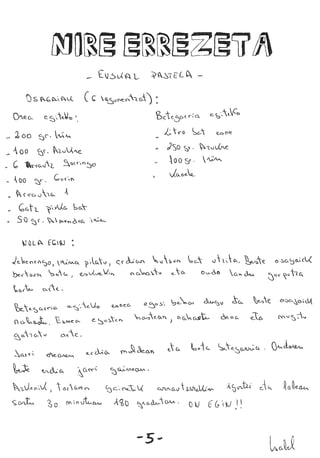 NIRE ERREZETA
- EUSKAL PASTELA -
OSAGAIAK (6 lagunentzat):
Orea egiteko:
Betegarria egiteko
- 200 gr. irin
- Litro bat esne
- 100 gr. Azukre
- 250 gr. Azukre
- 6 Arrautz gorringo
- 100 gr. irin
- 100 gr. Gurin
- Arrautza 1
- Gatz pixka bat
- 50 gr. Almendra irin
NOLA EGIN:
Lehenengo, irina pilatu, erdian hutsun bat utzita. Beste osagaiak
bertara bota, eskuekin nahastu eta ondo landu gorputza
hartu arte.
Betegarria egiteko esnea egosi behar dugu eta beste osagaiak
nahastu. Esnea egosten hastean, nahastu dena eta mugitu
gatzatu arte.
Jarri orearen erdia moldean eta bota betegarria. Ondoren
beste erdia jarri gainean.
Azkenik, tartaren gainetik arrautzarekin igurtzi eta labean
sartu 30 minutuan 180 gradutan. ON EGIN!!
-5-